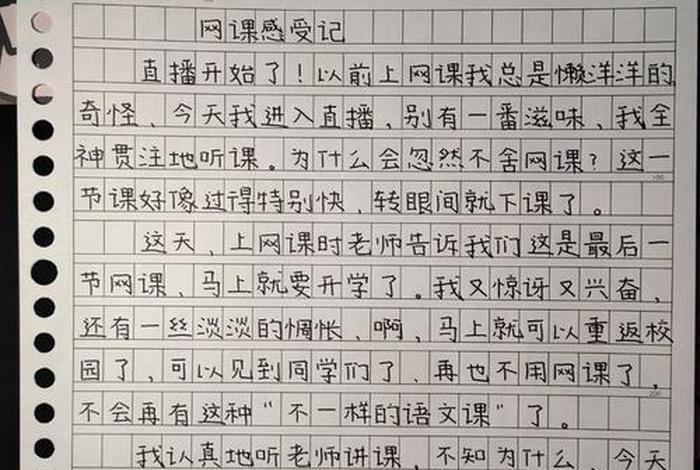 网课感受记
直播开始了！以前上网课我总是懒洋洋的，
奇怪、今天我进入直播，别有一番滋味、我全
神贯注地听课。为什么会忽然不舍网课？这一
节课好像过得特别快，转眼间就下课了。
这天、上网课时老师告诉我们这是最后一
节网课、马上就要开学了。我又惊讶又兴奋，
还有一丝淡淡的惆怅、啊，马上就可以重返校
园了，可以见到同学们了、再也不用网课了，
不会再有这种“不一样的语文课”了。
200
我认真地听老师讲课，不知为什么、今天